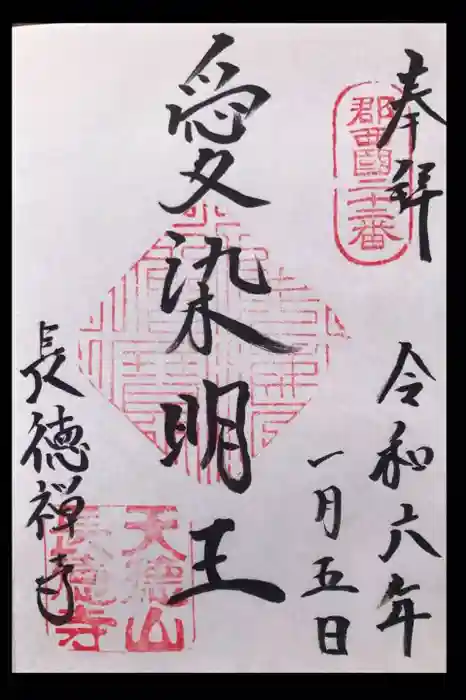 奉拝
郡西国三十三番
令和六年
一月五日
愛染明王
長徳禅寺
天徳山
長徳寺